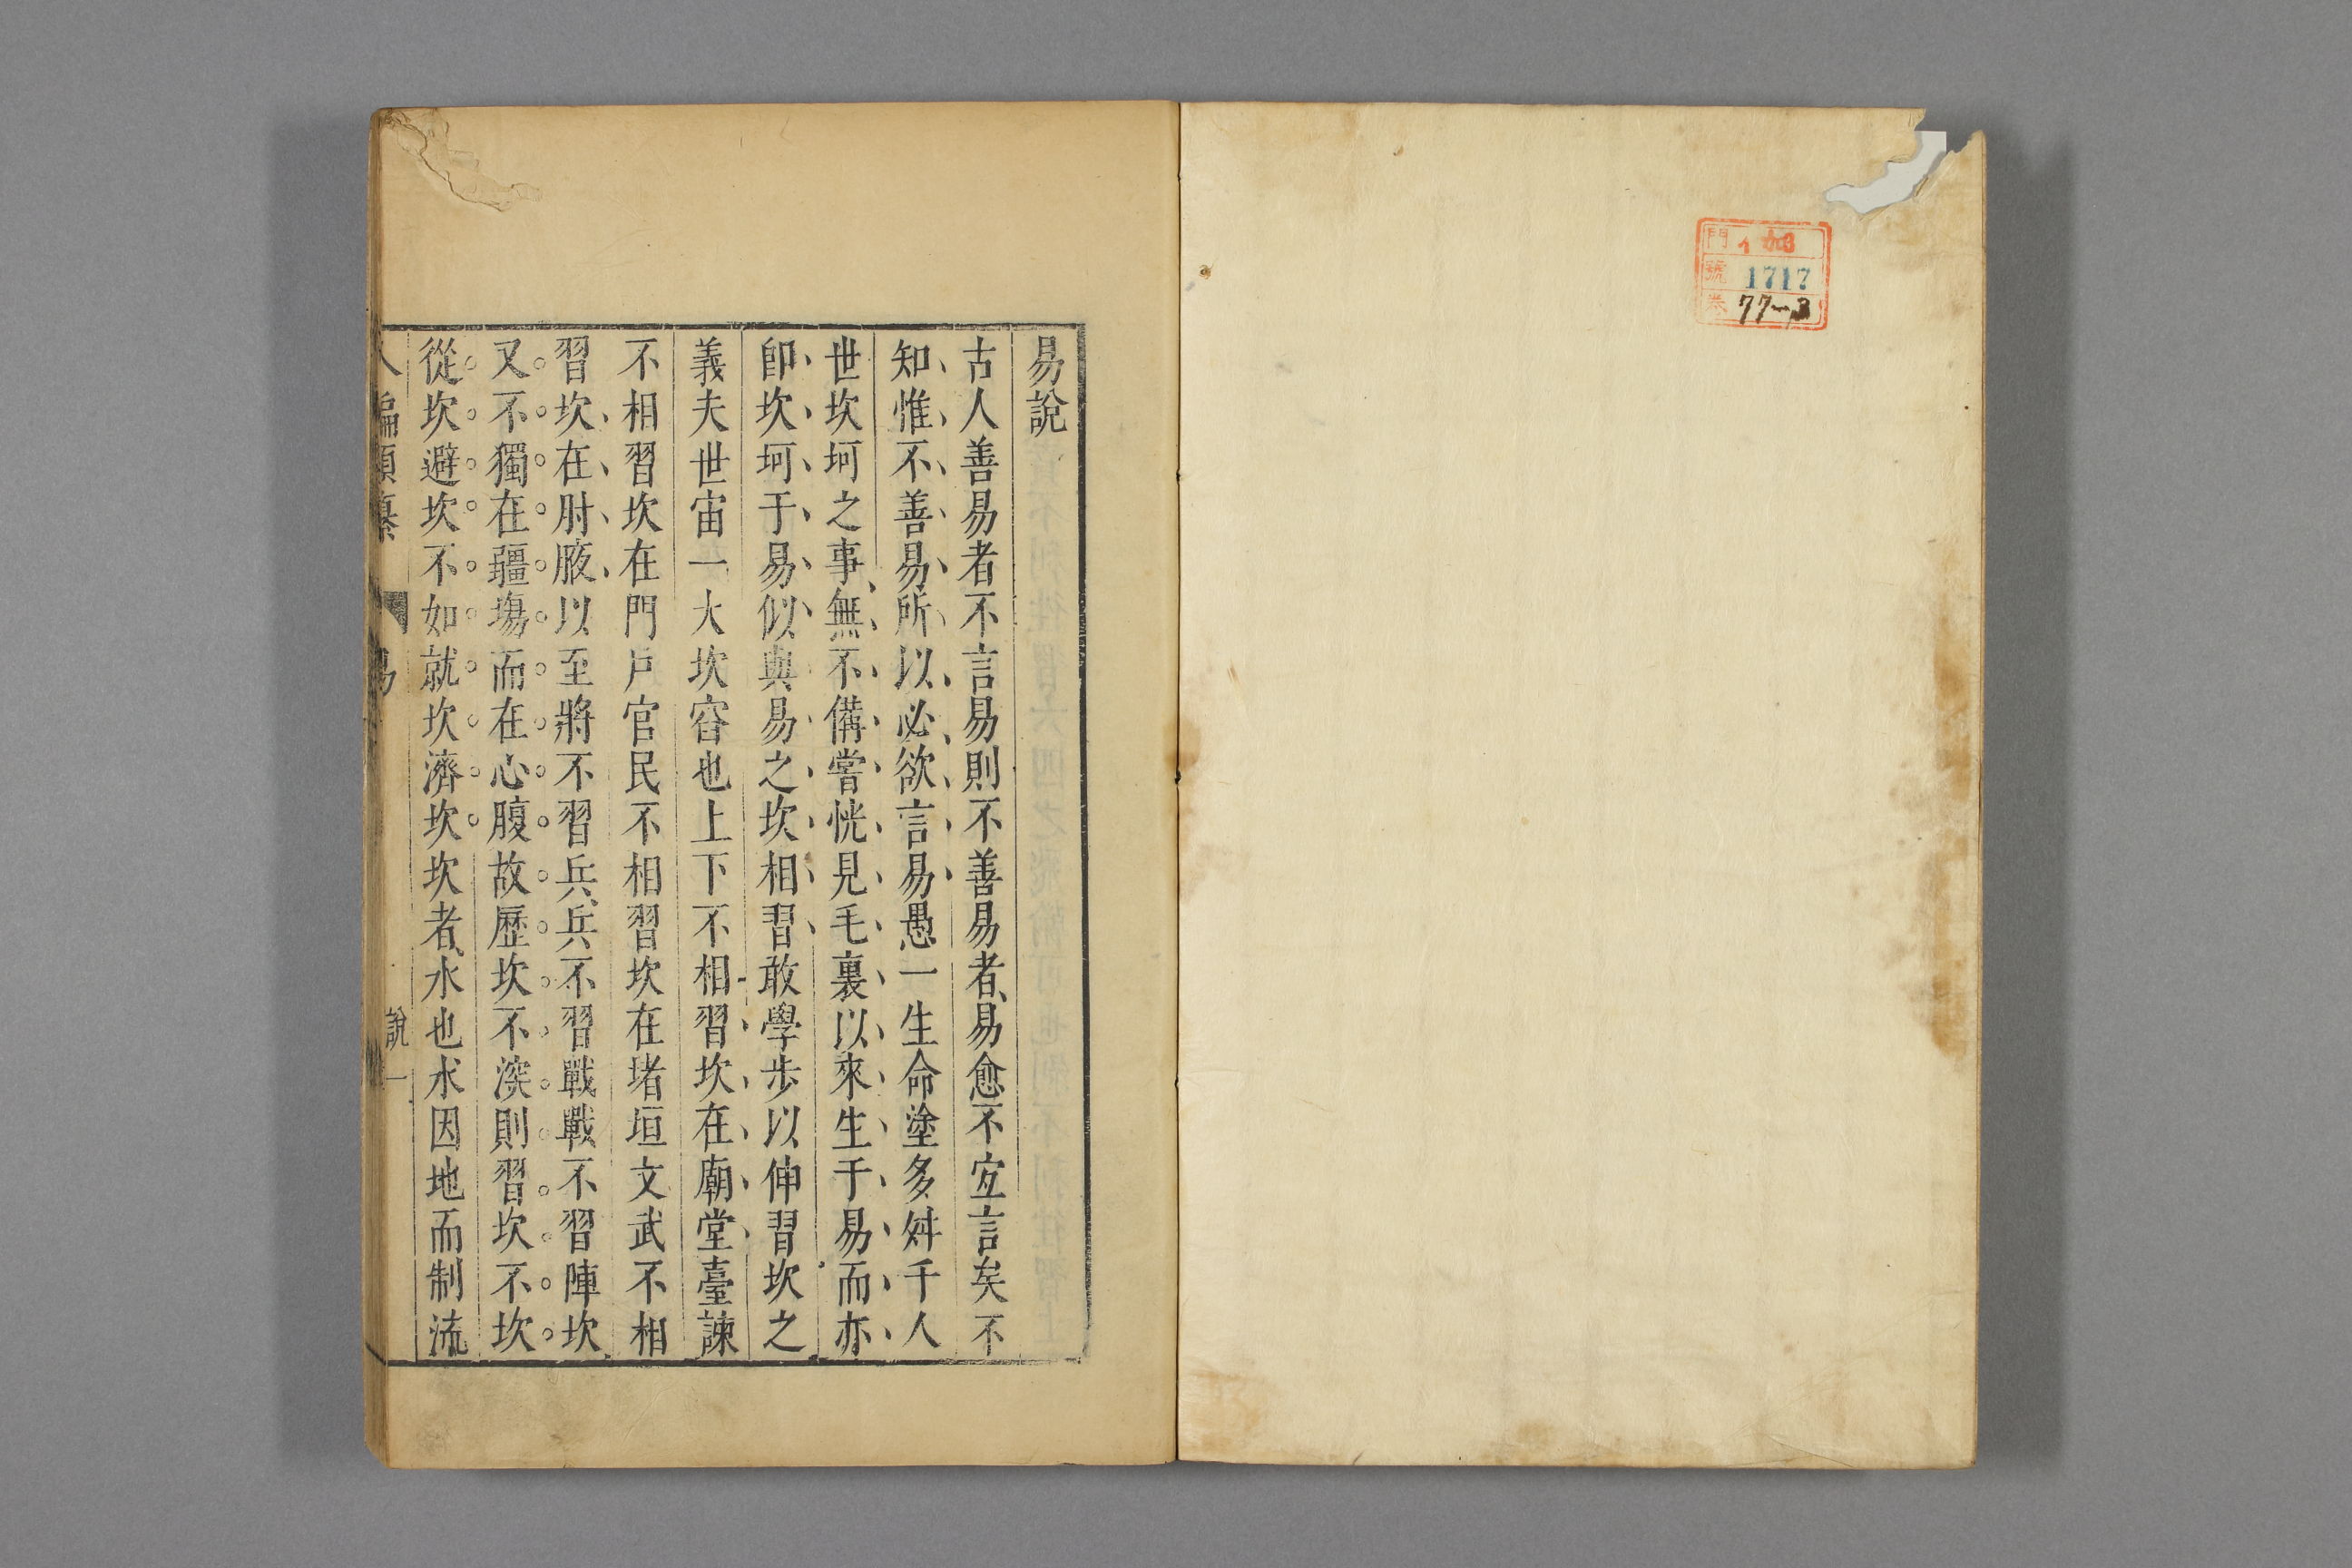 門 イ 加
號 1717
卷 77-3
易說
古人善易者不言易則不善易者易愈不宐言矣不
知惟不善易所以必欲言易愚一生命塗多舛千人
世坎坷之事無不備嘗恍見毛裏以來生于易而亦
卽坎坷于易似與易之坎相習敢學步以伸習坎之
義夫世宙一大坎窞也上下不相習坎在廟堂臺諫
不相習坎在門戶官民不相習坎在堵垣文武不相
習坎在肘腋以至將不習兵兵不習戰戰不習陣坎
又不獨在疆塲而在心腹故歷坎不深則習坎不坎
從坎避坎不如就坎濟坎坎者水也水因地而制流
八編類纂 易 說 一